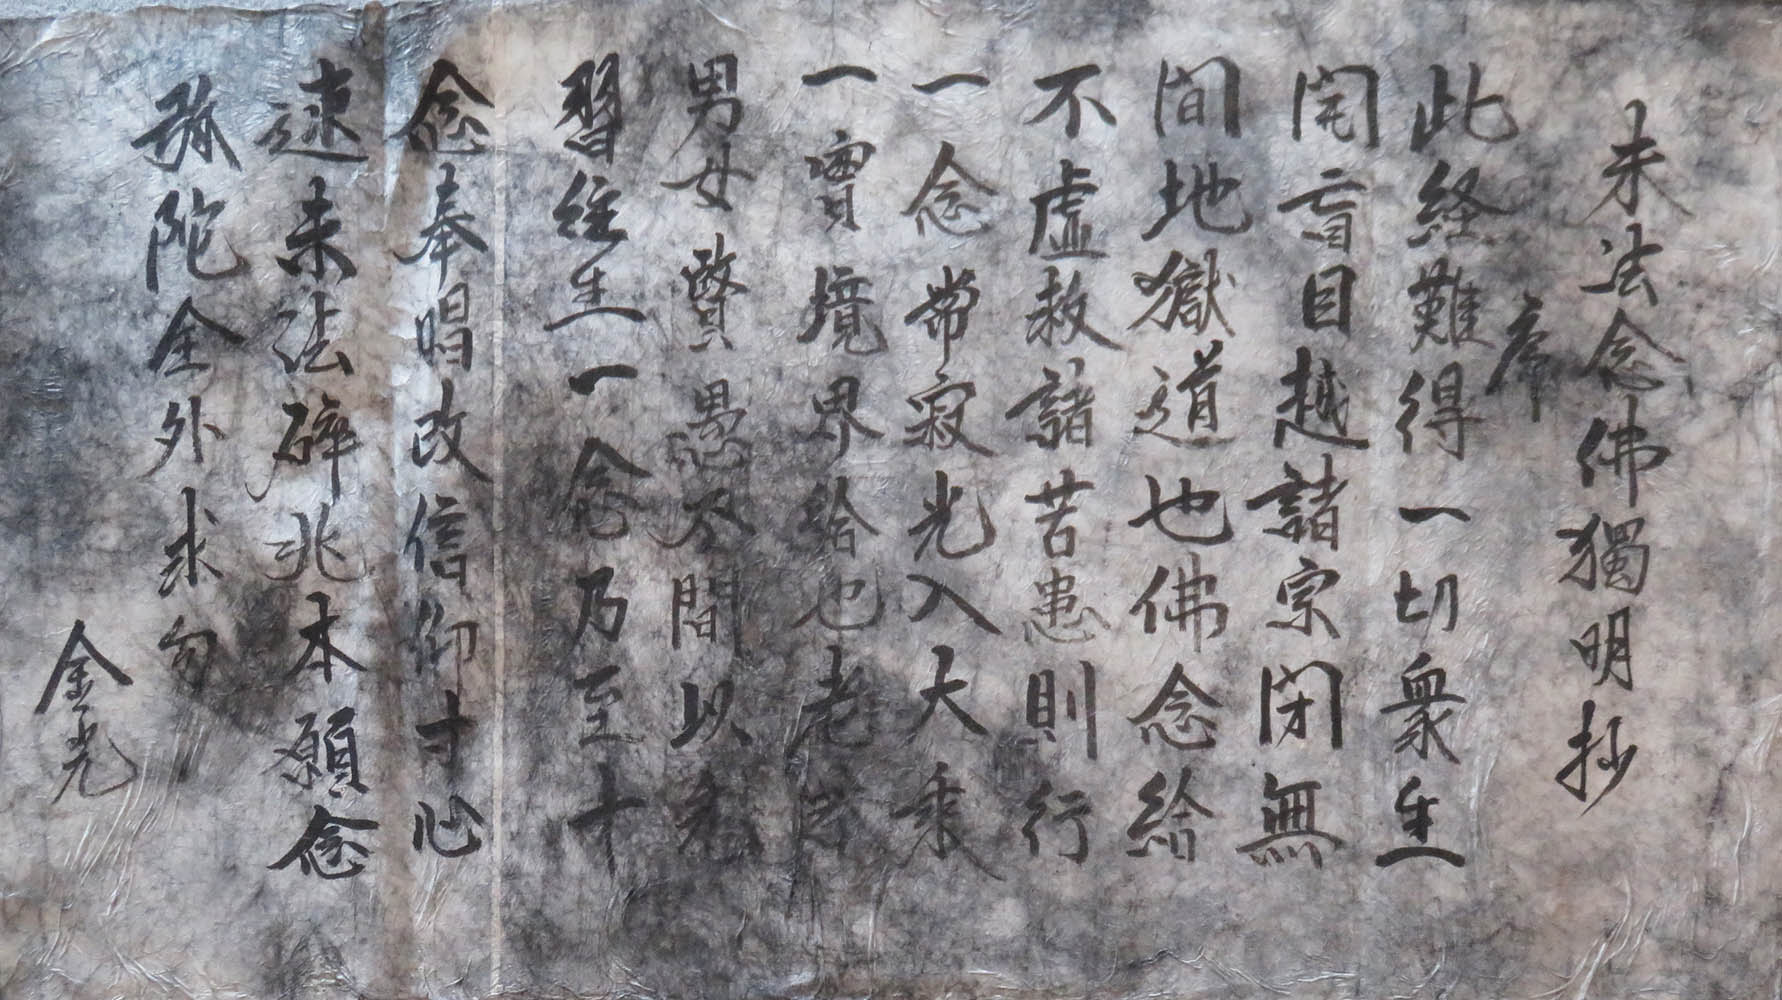 末法念佛獨明抄
序
此経難得一切衆生
開盲目越諸宗閉無
間地獄道也佛念給
不虚救諸苦患則行
一念帯寂光入大乗
一實境界給也老若
男女賢愚不問以利
習往生一念乃至十
念奉唱改信仰寸心
逮末法碎兆本願念
弥陀全外求勿
金光